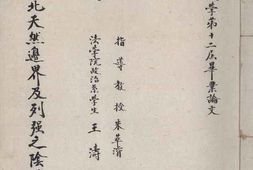 學第十二屆畢業論文
指導教授朱萃濬
法學院政治系學生王濤
北天然邊界及列强之陰